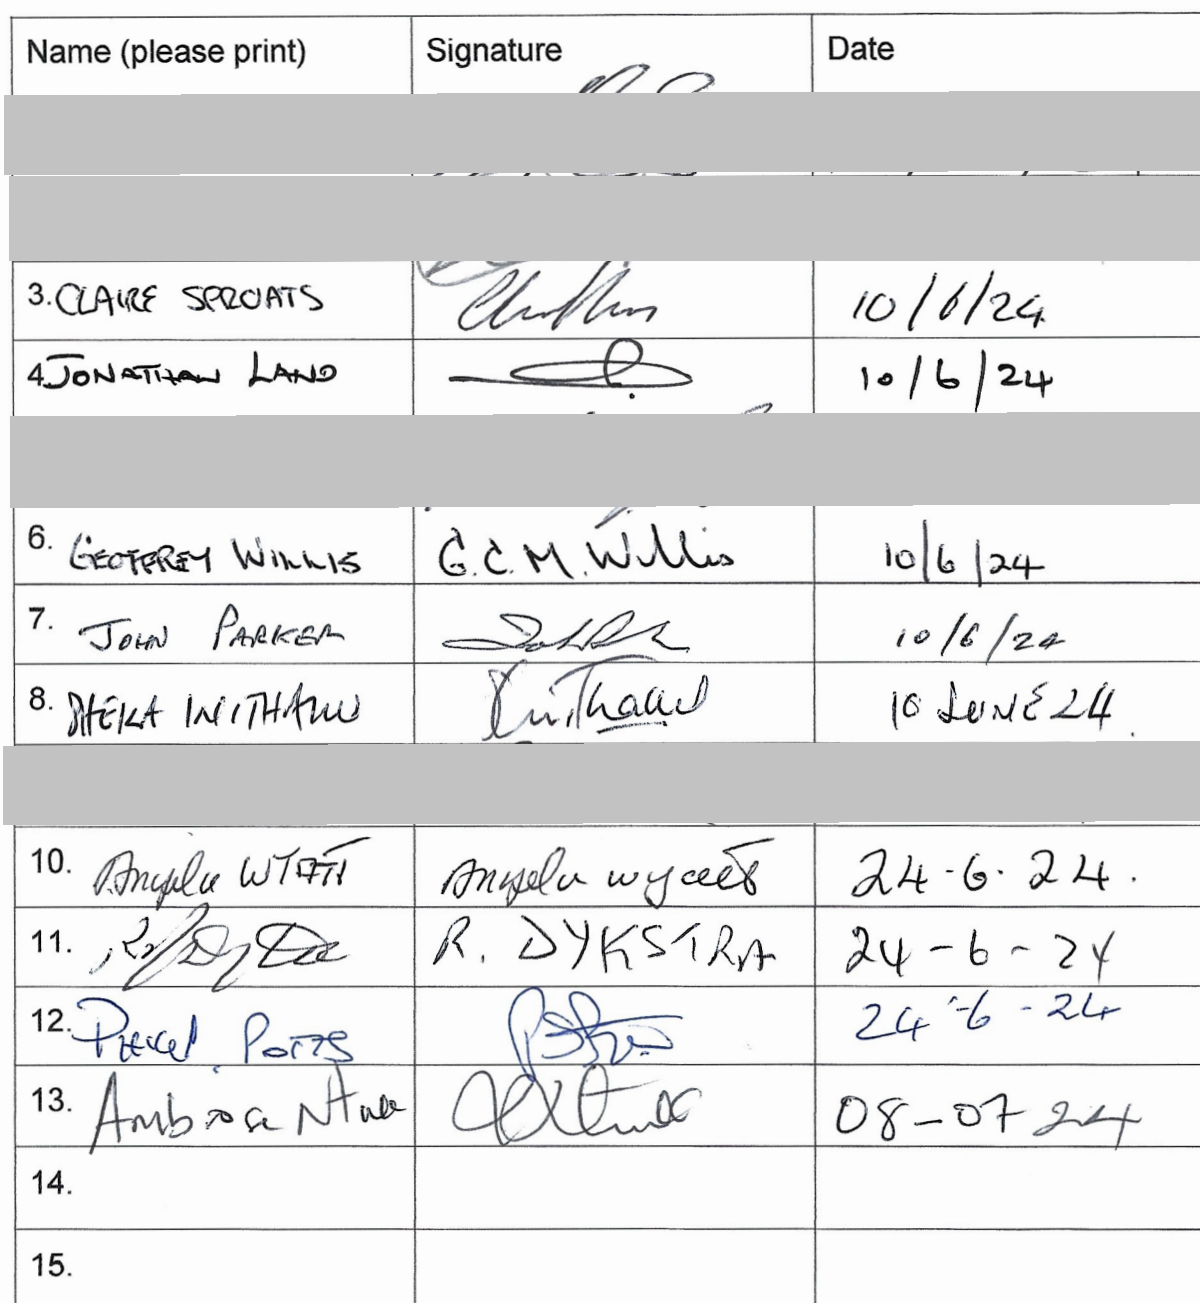 Name (please print) Signature Date
3. CLAIRE SPROATS 10/6/24
4 JONATHAN LAND 10/6/24
6. GEOFFREY WILLIS G.C.M. Willis 10/6/24
7. JOHN PARKER 10/6/24
8. 10 JUNE 24
10. Angela WYATT Angela Wyatt 24-6-24.
11. R. DYKSTRA 24-6-24
12. POTTS 24-6-24
13. Ambrose 08-07 24
14.
15.